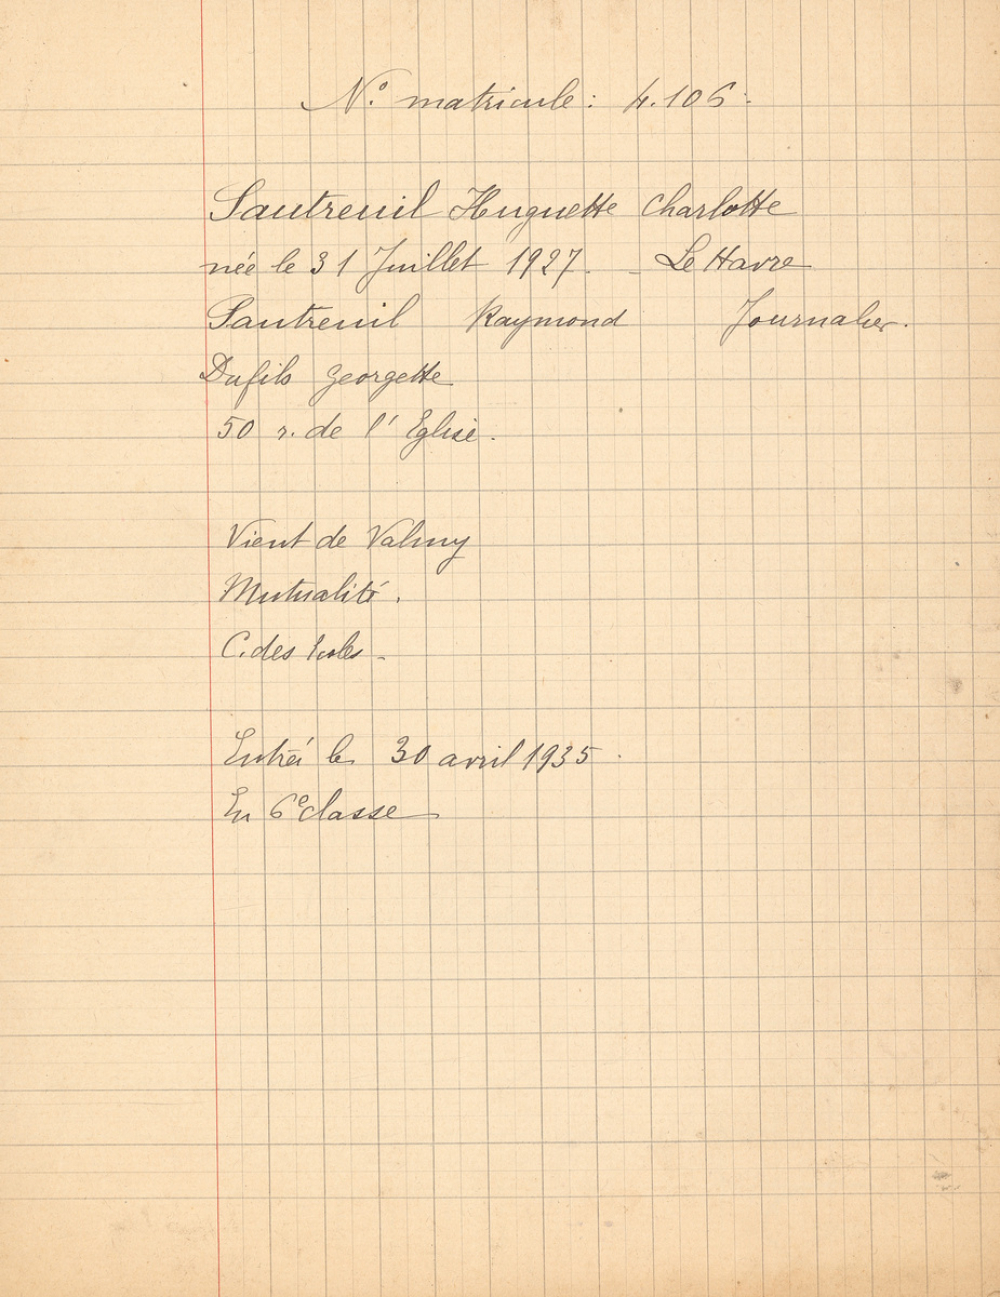 N° matricule : 4.106.
Sautreuil Huguette Charlotte
née le 31 Juillet 1927. - Le Havre
Sautreuil Raymond Journalier.
Dufils Georgette
50 r. de l'Eglise.
Vient de Valmy
Mutualité.
C. des Ecoles -
Entrée le 30 avril 1935.
En 6e classe